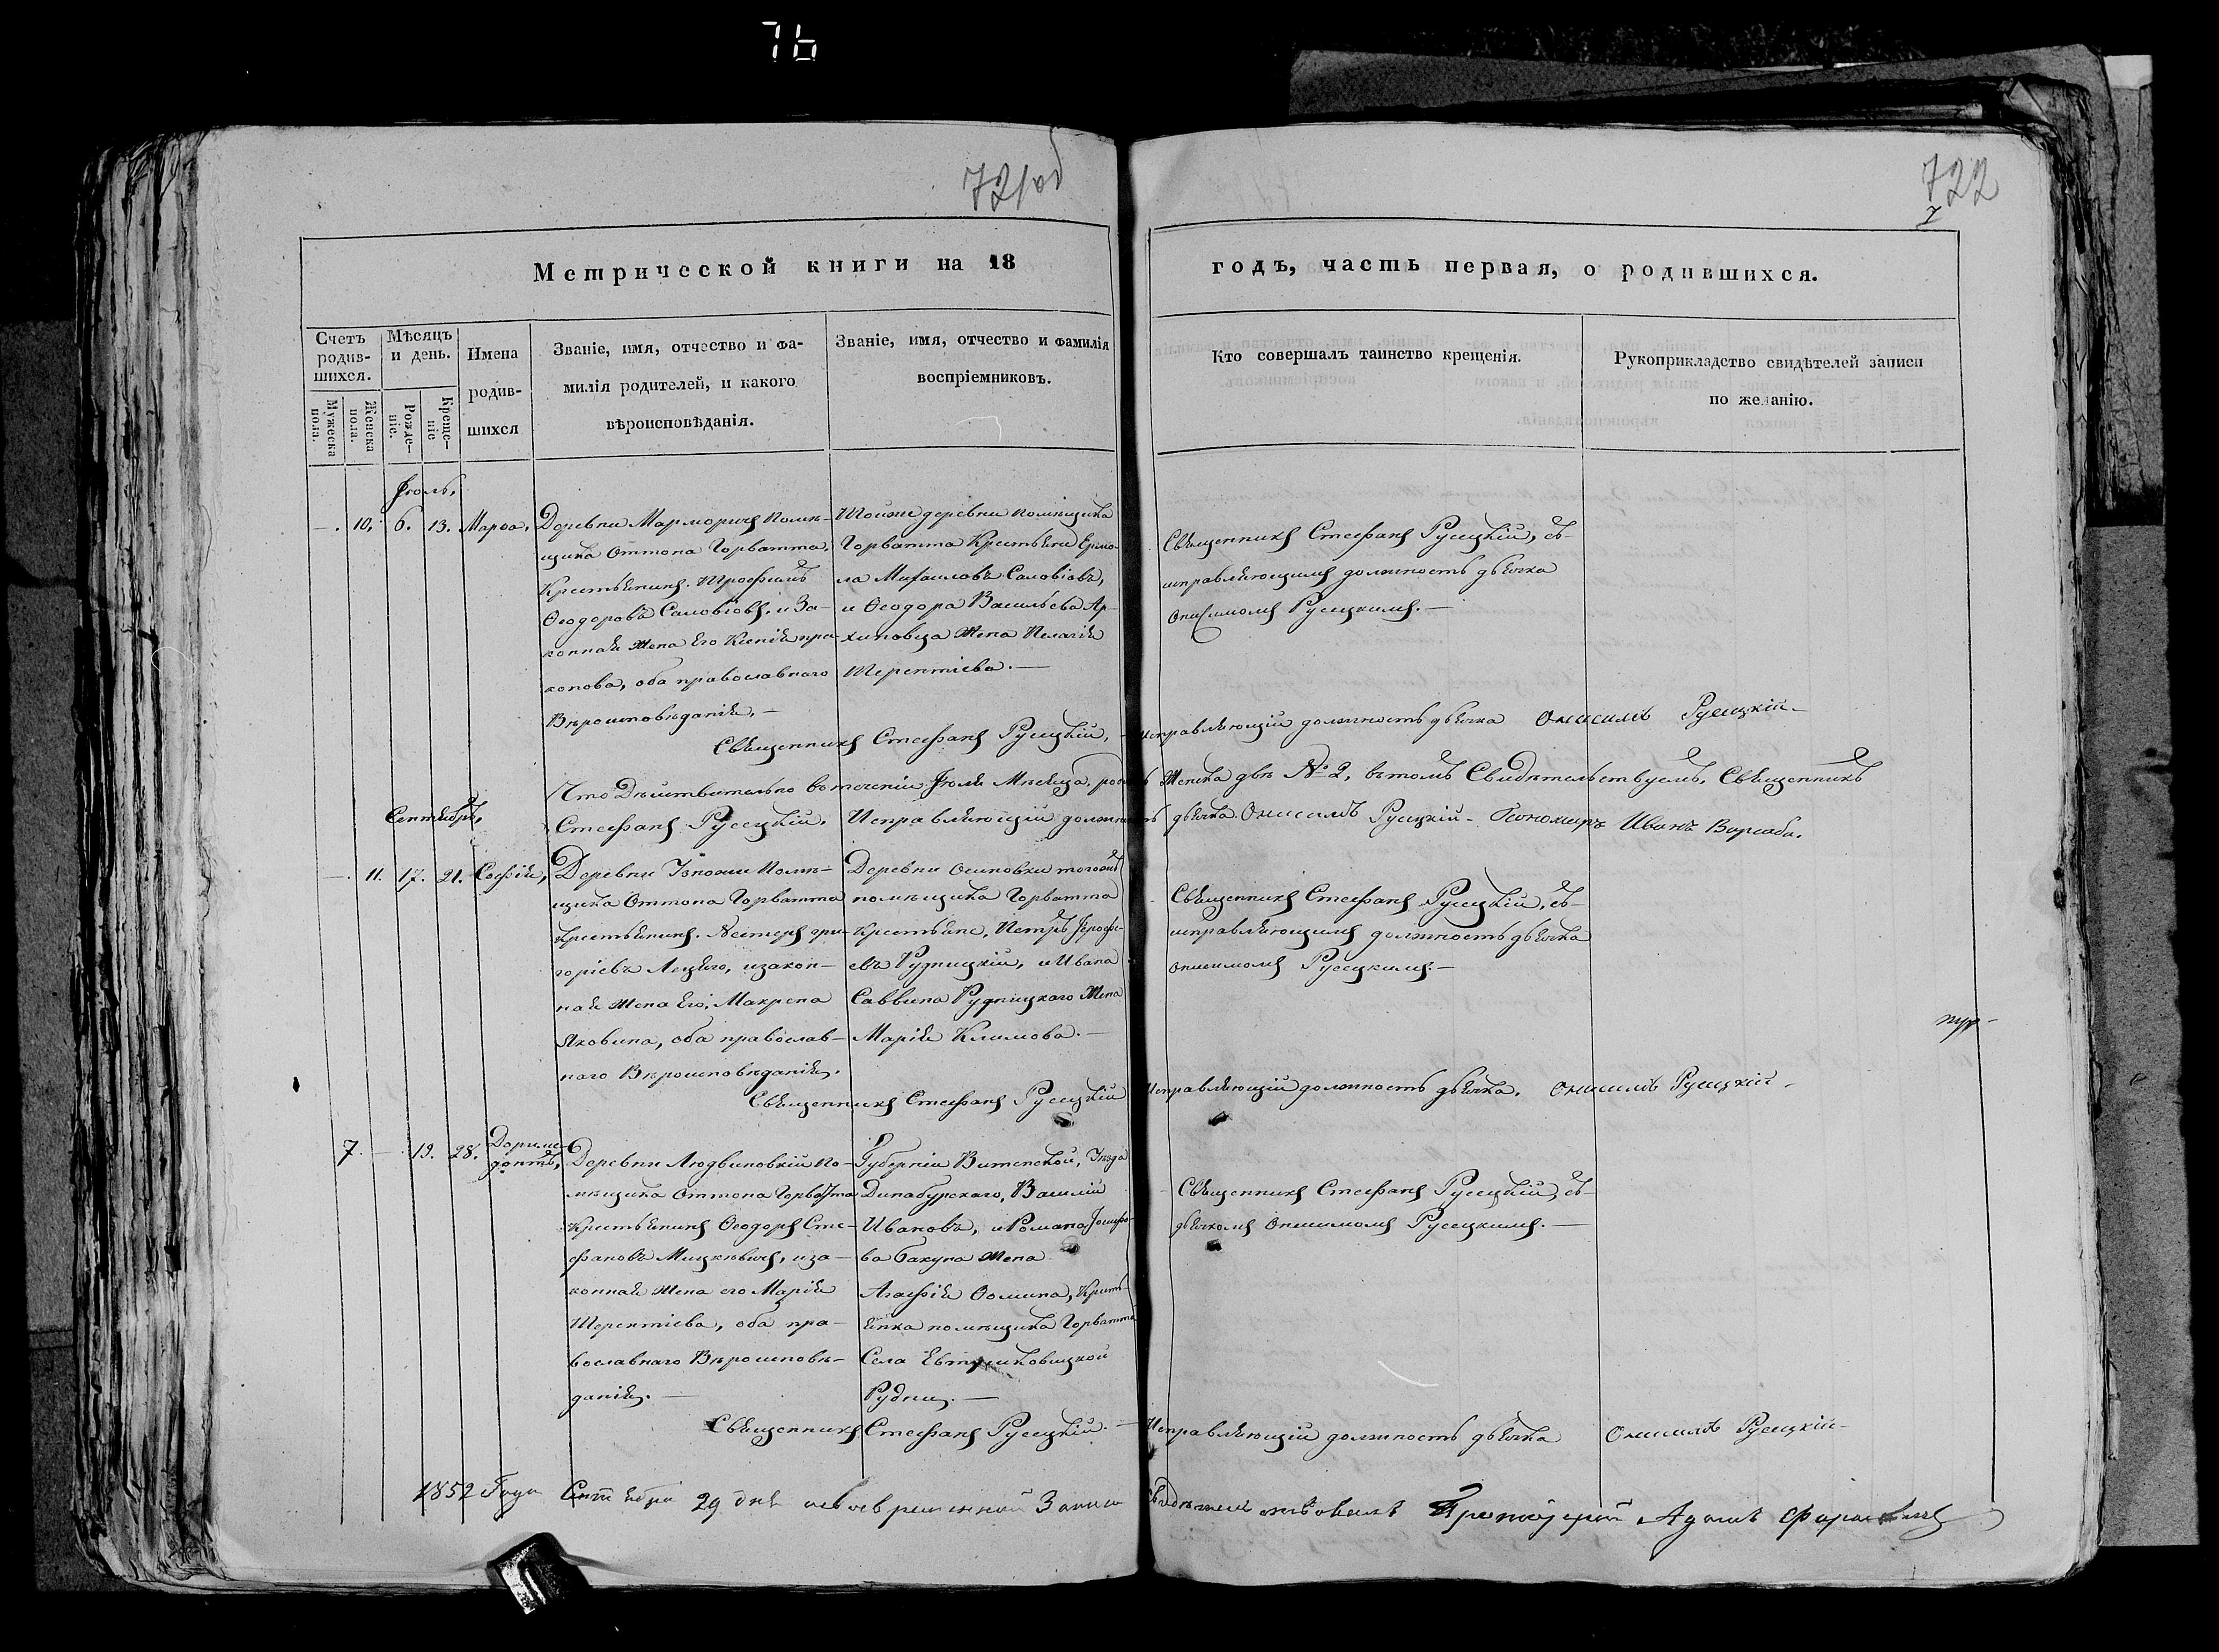 76
721 об
722
7
Метрической книги на 18
годъ, часть первая, о родившихся.
Счетъ родив- шихся.
Мѣсяцъ и день.
Имена родив- шихся
Званіе, имя, отчество и фа-
милія родителей, и какого
вѣроисповѣданія.
Званіе, имя, отчество и фамилія
воспріемниковъ.
Кто совершалъ таинство крещенія.
Рукоприкладство свидѣтелей записи
по желанію.
Мужеска пола.
Женска пола.
Рожде- ніе.
Креще- ніе
Іюль,
—. 10. 6. 13. Марѳа,
Деревни Мармовичъ помѣ-
щика Оттона Горватта,
Крестьянинъ. Трофимъ
Ѳеодоровъ Саловіовъ, и За-
конная жена Его Ксенія про-
копова, оба православнаго
Вѣроисповѣданія, —
Тойже деревни помѣщика
Горватта Крестьяни Ермо-
ла Михаиловъ Саловіовъ,
и Ѳеодора Васильева Ар-
хиповца Жена Пелагія
Терентіева. —
Священникъ Стефанъ Русецкій, съ
исправляющимъ должность дьячка
Онисимомъ Русецкимъ. —
Священникъ Стефанъ Русецкій, — Исправляющій должность дьячка Онисимъ Русецкій —
Что Дѣйствительно въ теченіи Іюля Мѣсяца, Женска двѣ № 2, въ томъ Свидѣтельствуемъ, Священникъ
Стефанъ Русецкій. Исправляющій должность дьячка Онисимъ Русецкій — Пономарь Иванъ
Сентябрь,
—. 11. 17. 21. Софія,
Деревни помѣ-
щика Оттона Горватта
крестьянинъ. Нестеръ гри-
горіевъ и закон-
ная жена Его, Макрена
Яковина, оба православ-
наго Вѣроисповѣданія.
Деревни Осиповки тогожъ
помѣщика Горватта
Крестьяне, Петръ Іерофе-
евъ Рудницкій, и Ивана
Саввина Рудницкаго Жена
Марія Климова. —
Священникъ Стефанъ Русецкій, съ
исправляющимъ должность дьячка
Онисимомъ Русецкимъ —
Священникъ Стефанъ Русецкій Исправляющій должность дьячка, Онисимъ Русецкій —
7. — 19. 28. Дориме-
донтъ,
Деревни Людвиновкій по-
мѣщика Оттона Горватта
Крестьянинъ Ѳеодоръ Сте-
фановъ Мицкѣвичъ, и за-
конная жена его Марія
Терентіева, оба пра-
вославнаго Вѣроисповѣ-
данія. —
Губерніи Витепской, Уѣзда
Динабурскаго, Василій
Ивановъ, и Романа Іосифо-
ва бакуна жена
Агафія Ѳомина, Кресть-
янка помѣщика Горватта
Села
Рудни. —
Священникъ Стефанъ Русецкій, съ
дьячкомъ Онисимомъ Русецкимъ. —
Священникъ Стефанъ Русецкій. — Исправляющій должность дьячка Онисимъ Русецкій —
1852 Года Сентября 29 дня Записи свидѣтельствовалъ Протоіерей Адамъ